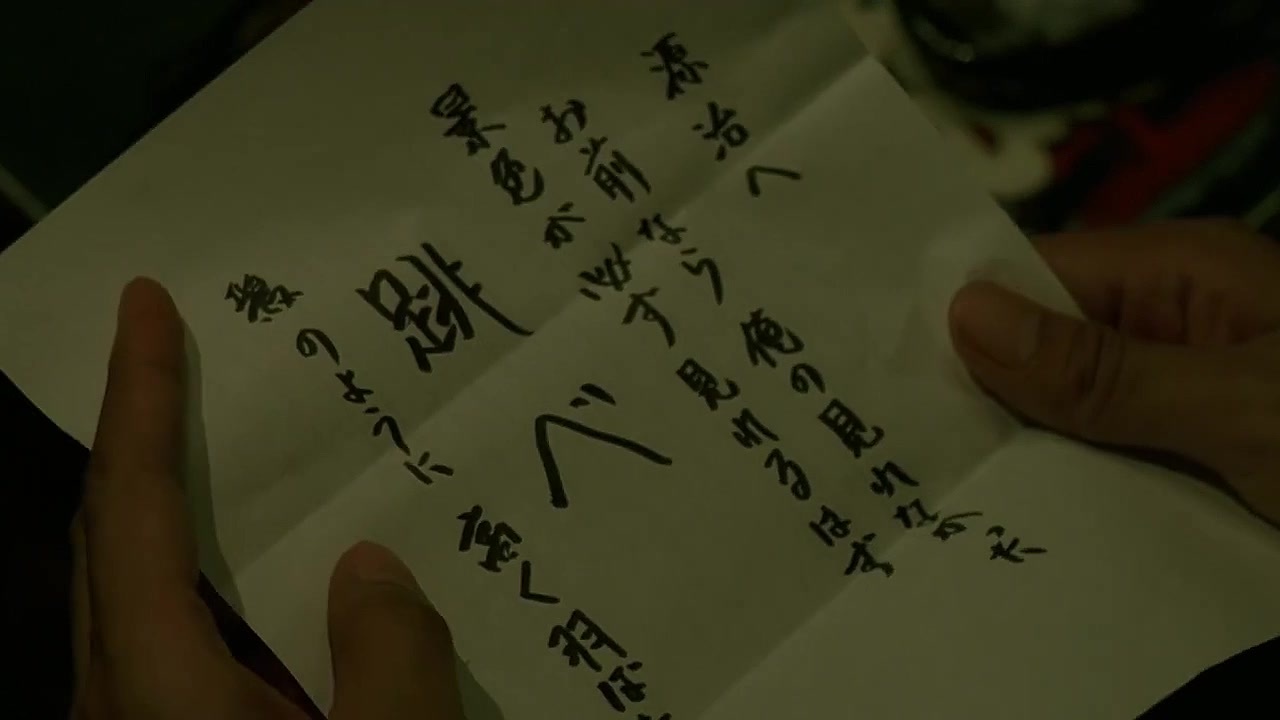 源治へ
お前なら俺の見れなかった
景色が必ず見れるはず
跳べ
のように高く羽ば